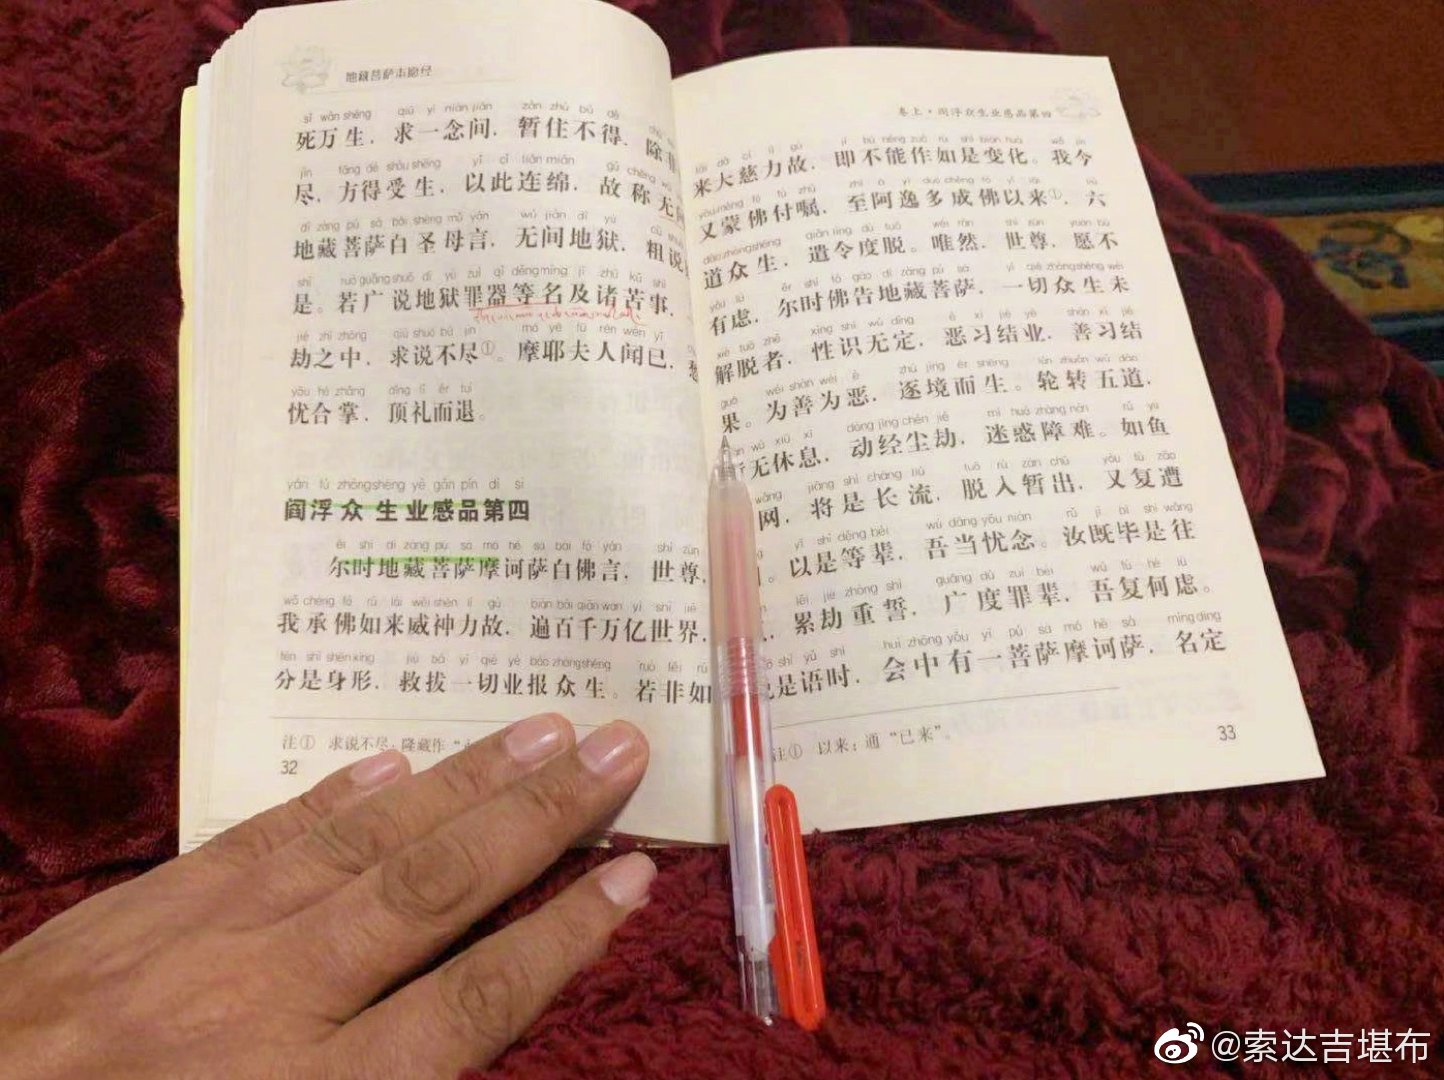 地藏菩萨本愿经
sǐ wàn shēng qiú yí niàn jiān zàn zhù bù dé
死万生，求一念间，暂住不得，除非
jìn fāng dé shòu shēng yǐ cǐ lián mián gù chēng wú
尽，方得受生，以此连绵，故称无间
dì zàng pú sà bái shèng mǔ yán wú jiān dì yù cū shuō
地藏菩萨白圣母言，无间地狱，粗说
shì ruò guǎng shuō dì yù zuì qì děng míng jí zhū kǔ shì
是。若广说地狱罪器等名及诸苦事，
jié zhī zhōng qiú shuō bù jìn mó yē fū rén wén yǐ
劫之中，求说不尽①。摩耶夫人闻已，愁
yōu hé zhǎng dǐng lǐ ér tuì
忧合掌，顶礼而退。
yán fú zhòng shēng yè gǎn pǐn dì sì
阎浮众生业感品第四
ěr shí dì zàng pú sà mó hē sà bái fó yán shì zūn
尔时地藏菩萨摩诃萨白佛言，世尊，
wǒ chéng fó rú lái wēi shén lì gù biàn bǎi qiān wàn yì shì jiè
我承佛如来威神力故，遍百千万亿世界，
fēn shì shēn xíng jiù bá yí qiè yè bào zhòng shēng ruò fēi rú
分是身形，救拔一切业报众生。若非如
注① 求说不尽：隆藏作“
32
卷上·阎浮众生业感品第四
lái dà cí lì gù jí bù néng zuò rú shì biàn huà wǒ jīn
来大慈力故，即不能作如是变化。我今
yòu méng fó fù zhǔ zhì ā yì duō chéng fó yǐ lái liù
又蒙佛付嘱，至阿逸多成佛以来①，六
dào zhòng shēng qiǎn lìng dù tuō wéi rán shì zūn yuàn bù
道众生，遣令度脱。唯然，世尊，愿不
yǒu lǜ ěr shí fó gào dì zàng pú sà yí qiè zhòng shēng wèi
有虑，尔时佛告地藏菩萨，一切众生未
xiè tuō zhě xìng shí wú dìng è xí jié yè shàn xí jié
解脱者，性识无定，恶习结业，善习结
guǒ wéi shàn wéi è zhú jìng ér shēng lún zhuǎn wǔ dào
果。为善为恶，逐境而生。轮转五道，
wú xiū xī dòng jīng chén jié mí huò zhàng nàn rú yú
无休息，动经尘劫，迷惑障难。如鱼
wǎng jiāng shì cháng liú tuō rù zàn chū yòu fù zāo
网，将是长流，脱入暂出，又复遭
yǐ shì děng bèi wú dāng yōu niàn rǔ jì bì shì wǎng
。以是等辈，吾当忧念。汝既毕是往
lěi jié zhòng shì guǎng dù zuì bèi wú fù hé lǜ
累劫重誓，广度罪辈，吾复何虑。
shì yǔ shí huì zhōng yǒu yì pú sà mó hē sà míng dìng
是语时，会中有一菩萨摩诃萨，名定
注① 以来：通“已来”。
33
@索达吉堪布